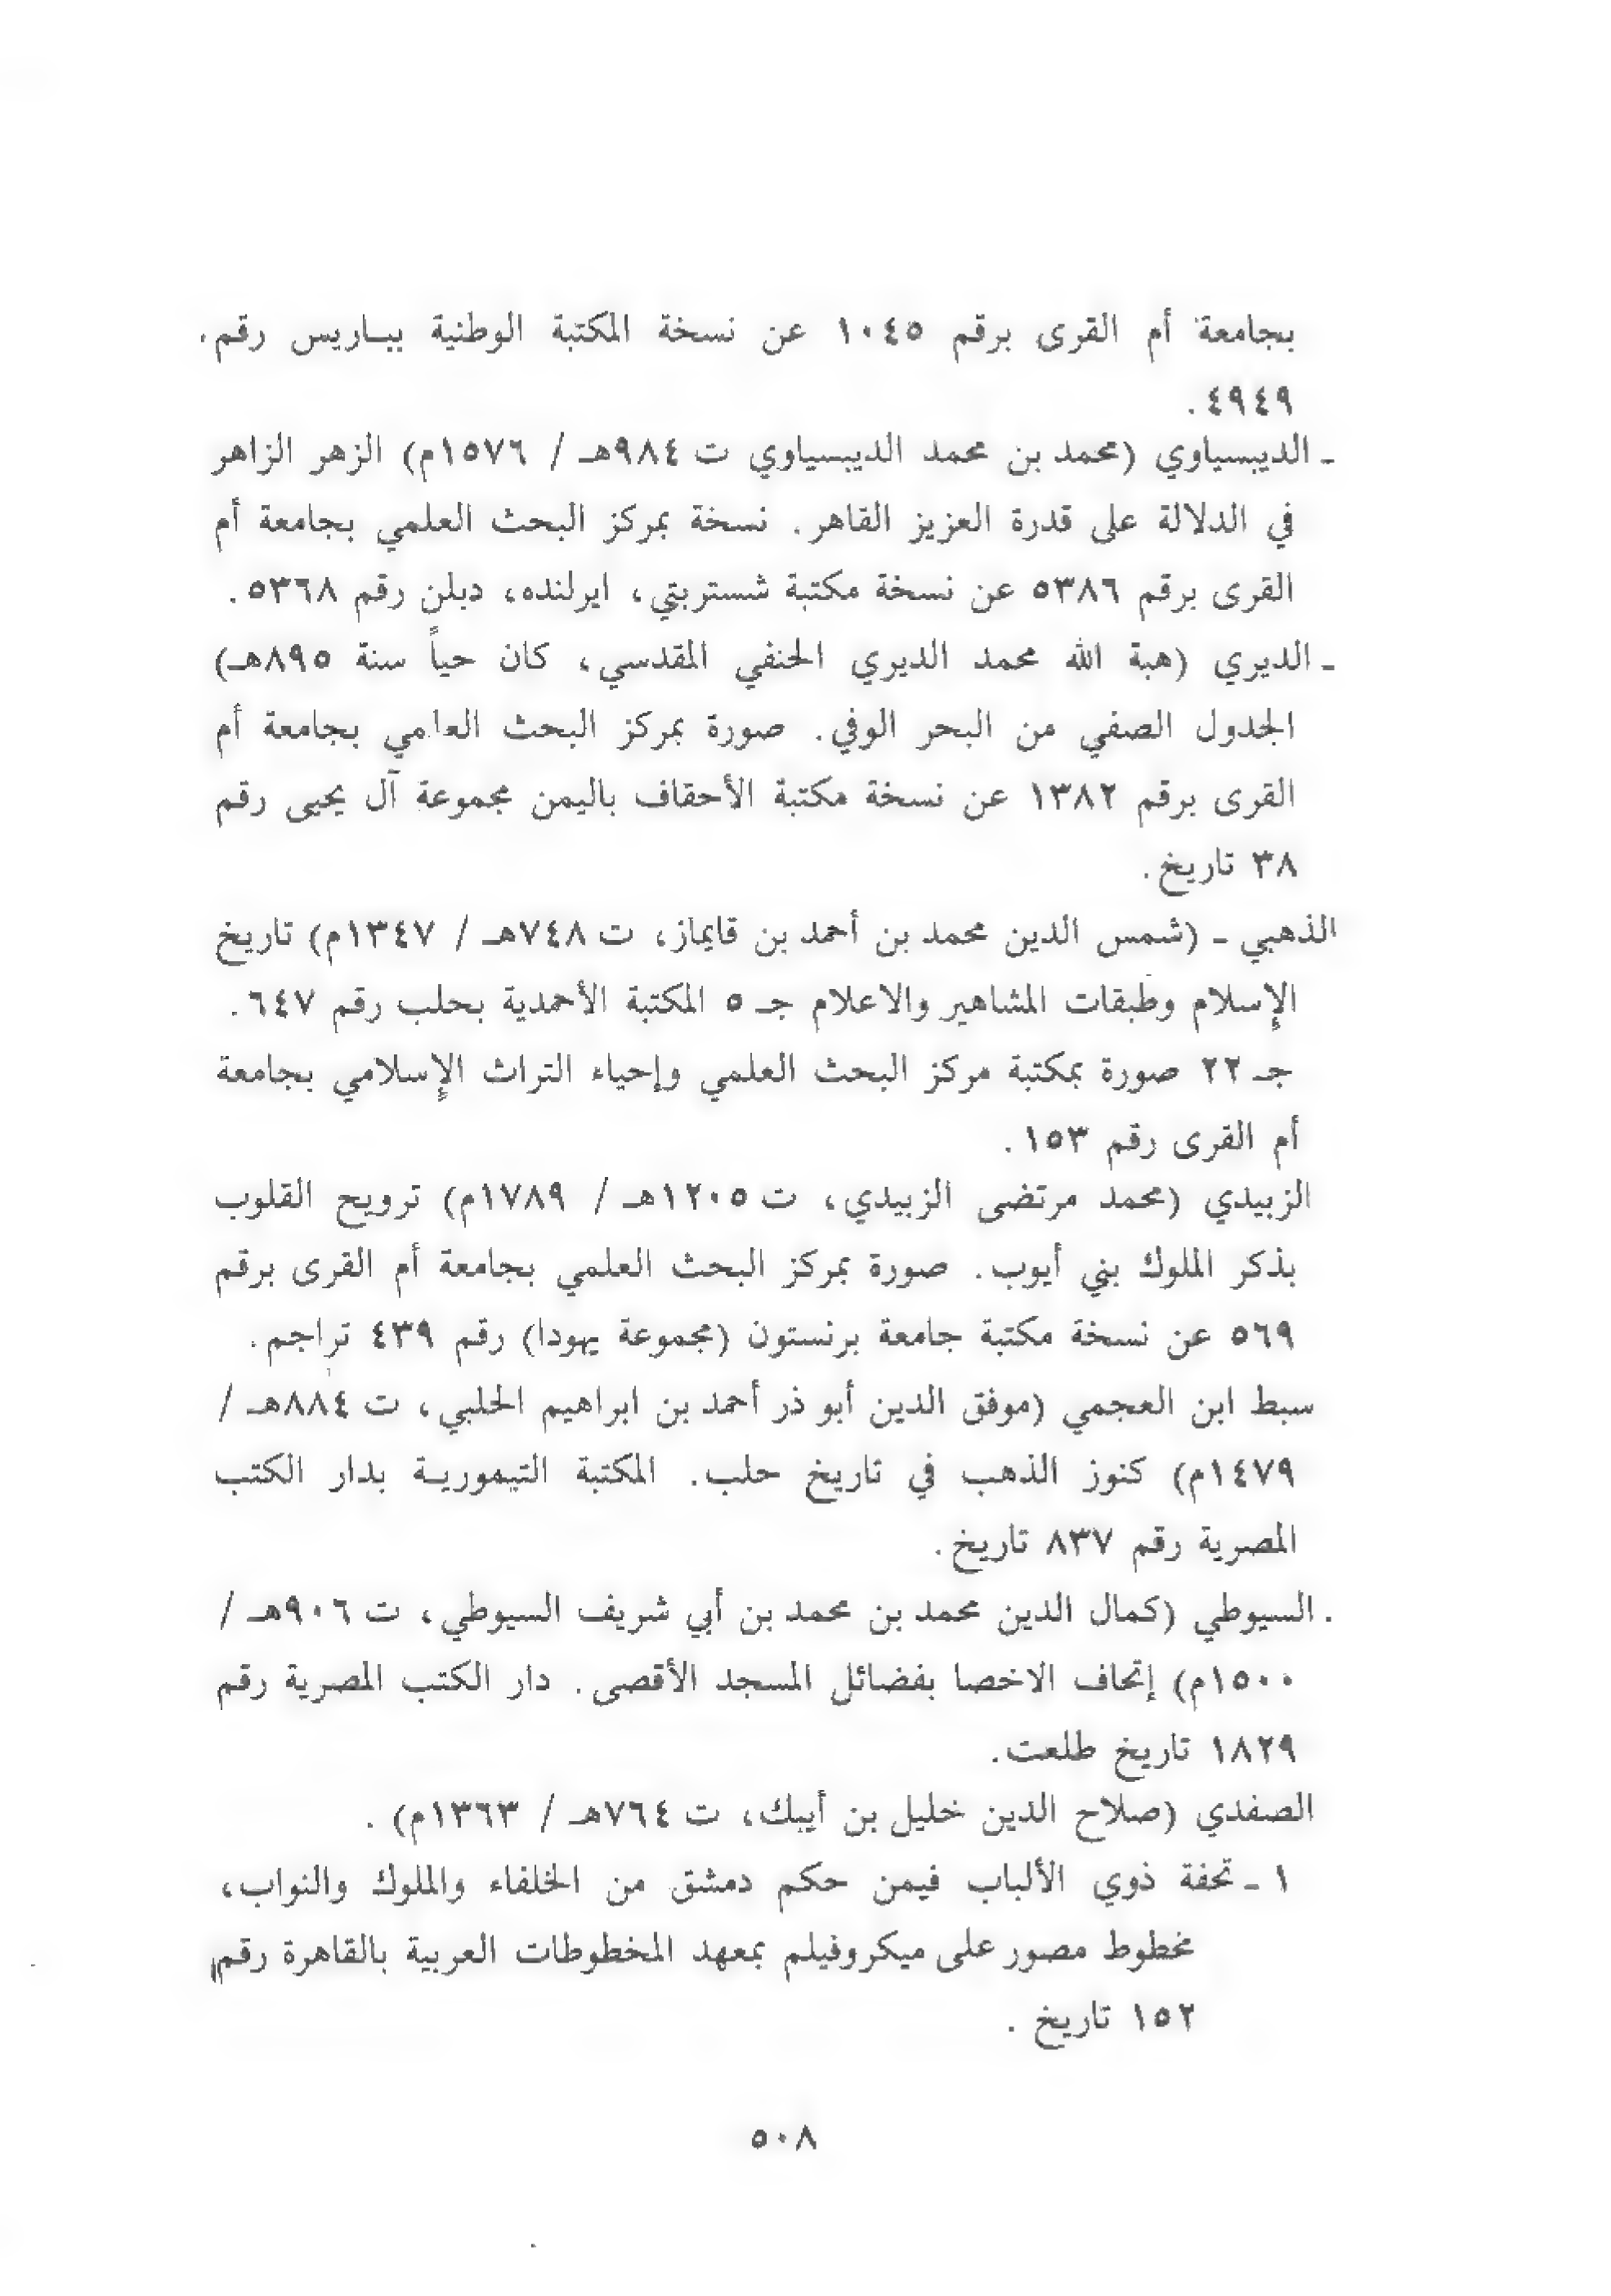 بجامعة أم القرى برقم ١٠٤٥ عن نسخة المكتبة الوطنية ببـاريس رقم.
٤٩٤٩.
ـ الديبسياوي (محمد بن محمد الديبسياوي ت ٩٨٤هـ / ١٥٧٦م) الزهر الزاهر
في الدلالة على قدرة العزيز القاهر. نسخة بمركز البحث العلمي بجامعة أم
القرى برقم ٥٣٨٦ عن نسخة مكتبة شستربتي، ايرلنده، دبلن رقم ٥٣٦٨.
ـ الديري (هبة الله محمد الديري الحنفي المقدسي، كان حياً سنة ٨٩٥هـ)
الجدول الصفي من البحر الوفي. صورة بمركز البحث العلمي بجامعة أم
القرى برقم ١٣٨٢ عن نسخة مكتبة الأحقاف باليمن مجموعة آل يحيى رقم
٣٨ تاريخ.
الذهبي ـ (شمس الدين محمد بن أحمد بن قايماز، ت ٧٤٨هـ / ١٣٤٧م) تاريخ
الإسلام وطبقات المشاهير والاعلام جـ ٥ المكتبة الأحمدية بحلب رقم ٦٤٧.
جـ ٢٢ صورة بمكتبة مركز البحث العلمي وإحياء التراث الإسلامي بجامعة
أم القرى رقم ١٥٣.
الزبيدي (محمد مرتضى الزبيدي، ت ١٢٠٥هـ / ١٧٨٩م) ترويح القلوب
بذكر الملوك بني أيوب. صورة بمركز البحث العلمي بجامعة أم القرى برقم
٥٦٩ عن نسخة مكتبة جامعة برنستون (مجموعة يهودا) رقم ٤٣٩ تراجم.
سبط ابن العجمي (موفق الدين أبو ذر أحمد بن ابراهيم الحلبي، ت ٨٨٤هـ /
١٤٧٩م) كنوز الذهب في تاريخ حلب. المكتبة التيموريـة بدار الكتب
المصرية رقم ٨٣٧ تاريخ.
. السيوطي (كمال الدين محمد بن محمد بن أبي شريف السيوطي، ت ٩٠٦هـ /
١٥٠٠م) إتحاف الاخصا بفضائل المسجد الأقصى. دار الكتب المصرية رقم
١٨٢٩ تاريخ طلعت.
الصفدي (صلاح الدين خليل بن أيبك، ت ٧٦٤هـ / ١٣٦٣م).
١ ـ تحفة ذوي الألباب فيمن حكم دمشق من الخلفاء والملوك والنواب،
مخطوط مصور على ميكروفيلم بمعهد المخطوطات العربية بالقاهرة رقم
١٥٢ تاريخ.
٥٠٨